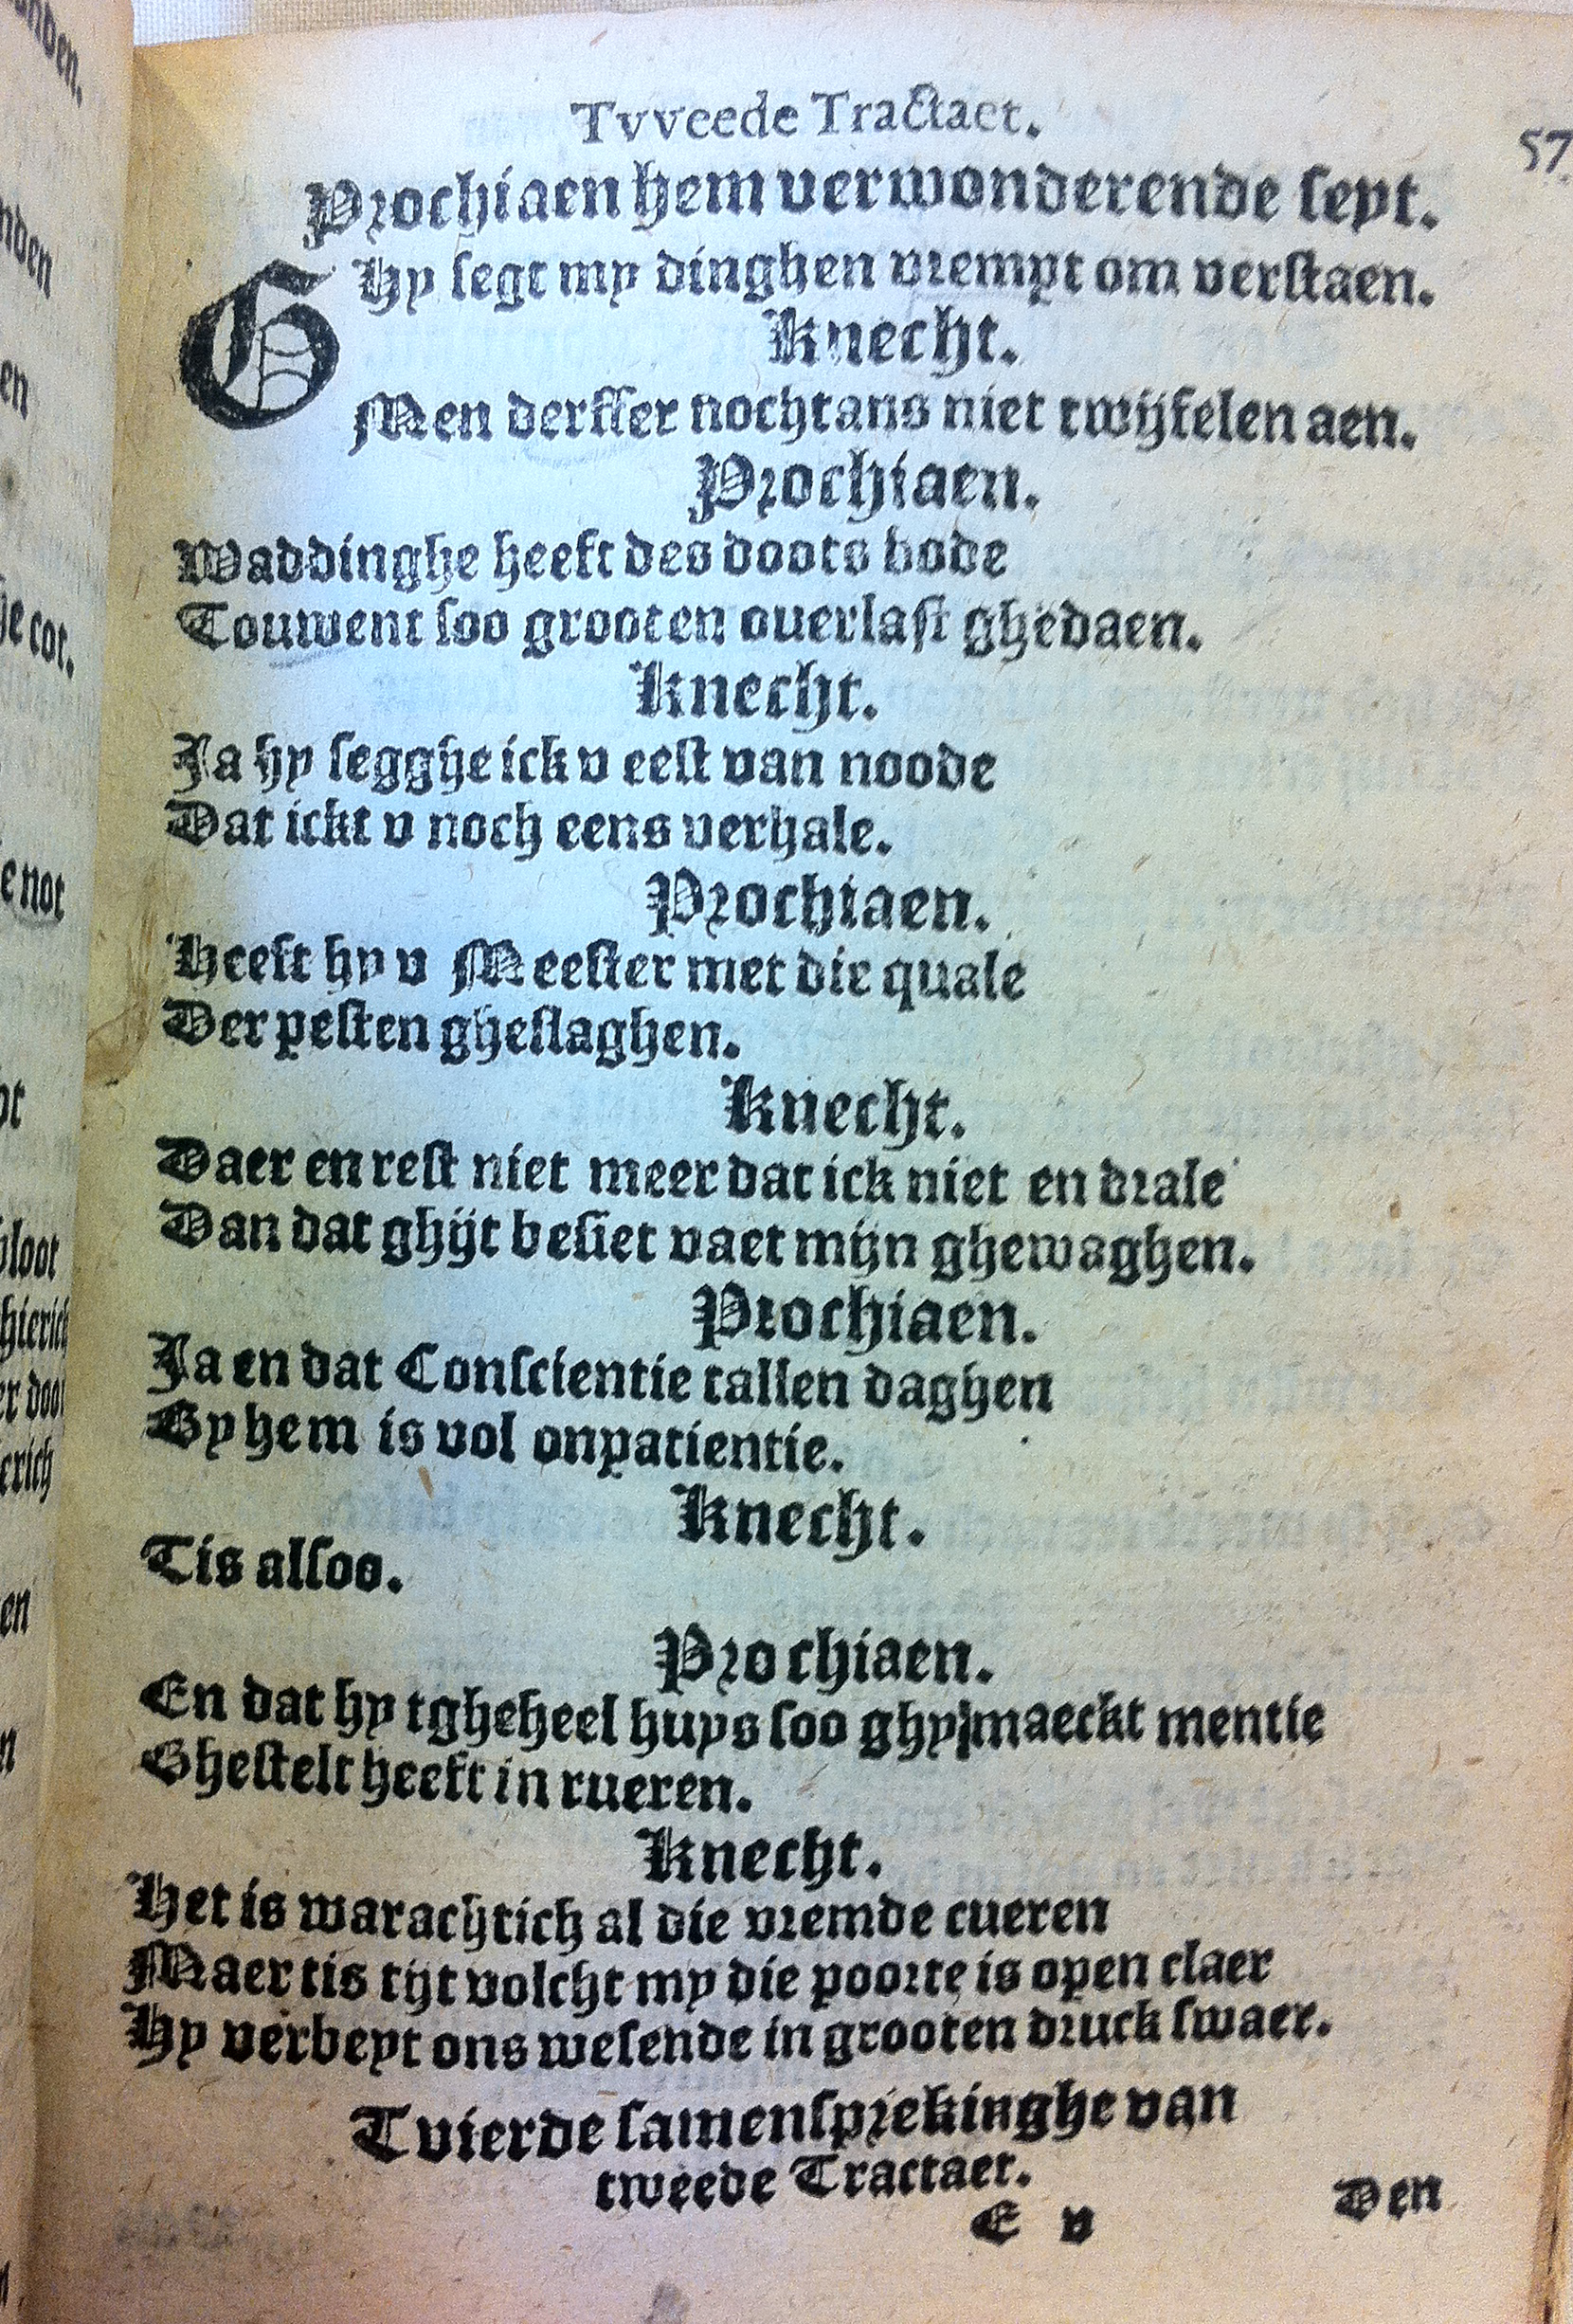 Tvveede Tractaet.
57
Prochiaen hem verwonderende seyt.
GHy segt my dinghen vrempt om verstaen.
Knecht.
Men derffer nochtans niet twijfelen aen.
Prochiaen.
Waddinghe heeft des doots bode
Touwent soo grooten ouerlast ghedaen.
Knecht.
Ja hy segghe ick v eest van noode
Dat ickt v noch eens verhale.
Prochiaen.
Heeft hy v Meester met die quale
Der pesten gheslaghen.
Knecht.
Daer en rest niet meer dat ick niet en drale
Dan dat ghijt besiet vaet mijn ghewaghen.
Prochiaen.
Ja en dat Conscientie tallen daghen
By hem is vol onpatientie.
Knecht.
Tis alsoo.
Prochiaen.
En dat hy tgheheel huys soo ghy maeckt mentie
Ghestelt heeft in rueren.
Knecht.
Het is warachtich al die vremde cueren
Maer tis tijt volcht my die poorte is open claer
Hy verbeyt ons wesende in grooten druck swaer.
Tvierde samensprekinghe van
tweede Tractaet.
E v
Den